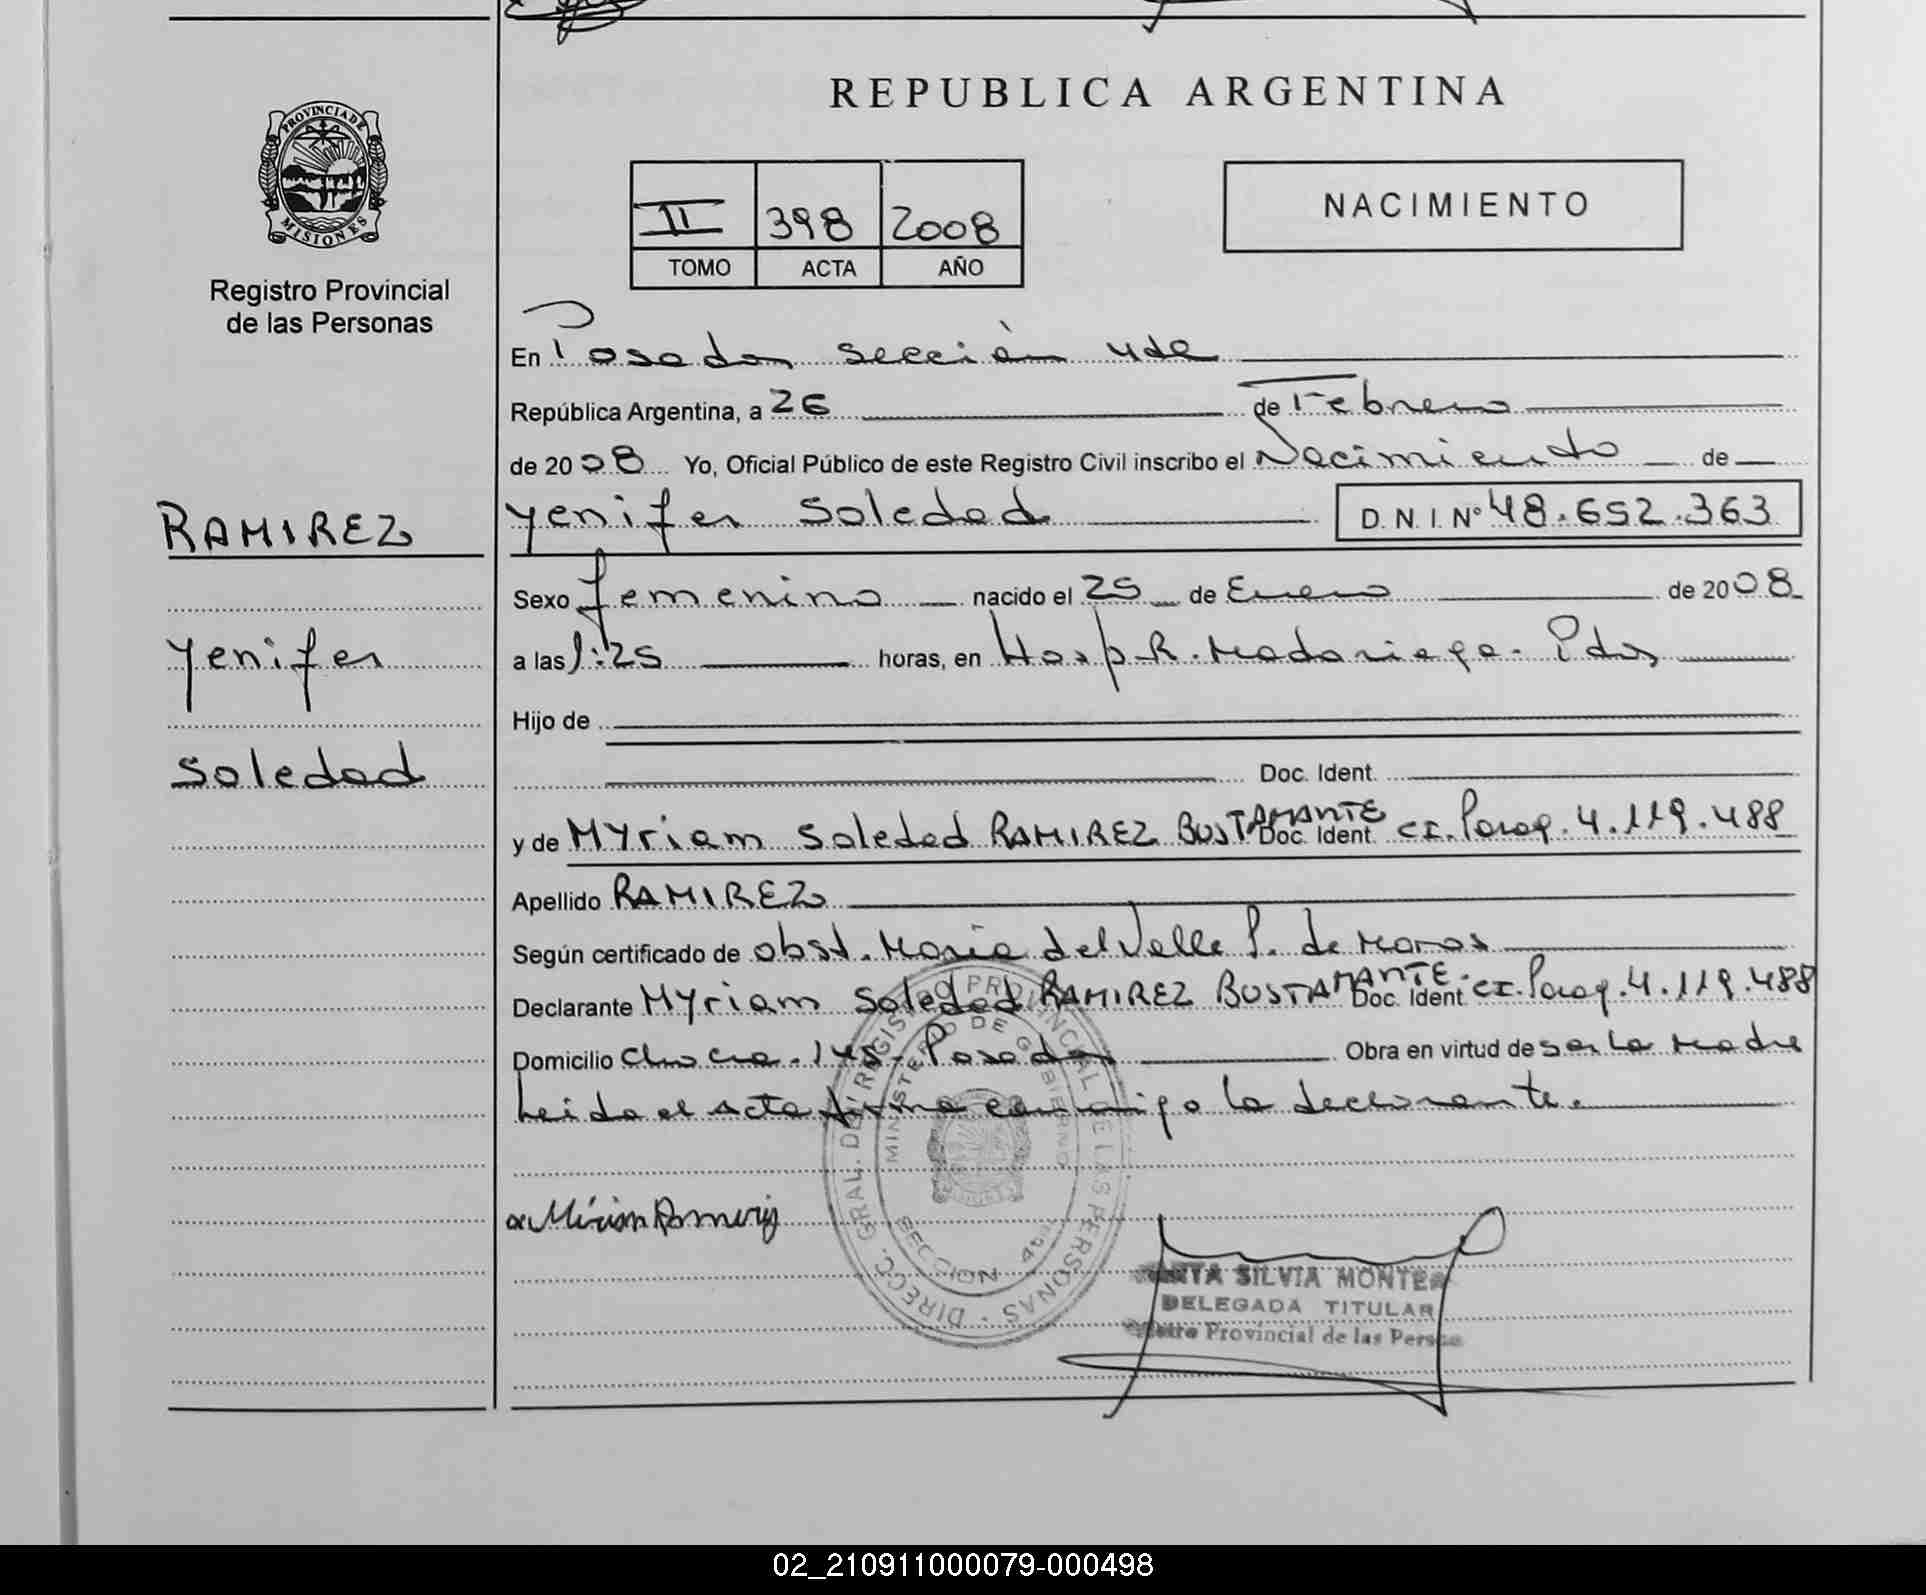 REPUBLICA ARGENTINA
PROVINCIA DE
MISIONES
Registro Provincial
de las Personas
II 398 2008
TOMO ACTA AÑO
NACIMIENTO
En Posadas sección 4da
República Argentina, a 26 de Febrero
de 2008 Yo, Oficial Público de este Registro Civil inscribo el Nacimiento de
Yenifer Soledad D.N.I. Nº 48.652.363
RAMIREZ
Yenifer
Soledad
Sexo femenino nacido el 25 de Enero de 2008
a las 1:25 horas, en Hosp R. Madariaga - Pdas
Hijo de
Doc. Ident.
y de Myriam Soledad RAMIREZ BUSTAMANTE Doc. Ident. CI. Parag. 4.119.488
Apellido RAMIREZ
Según certificado de obst. Maria del Valle P. de
Declarante Myriam Soledad RAMIREZ BUSTAMANTE. Doc. Ident. CI. Parag. 4.119.488
Domicilio Chacra - 145 - Posadas Obra en virtud de ser la Madre
Leida el acta firma conmigo la declarante.
DIRECC. GRAL. DEL REGISTRO PROVINCIAL DE LAS PERSONAS
MINISTERIO DE GOBIERNO
SECCION
SILVIA
DELEGADA TITULAR
Provincial de las
02_210911000079-000498